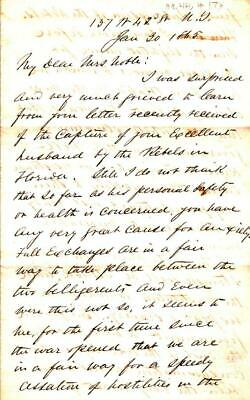 157 W 42d St N.Y.
Jan 20 1865
My Dear Mrs Noble:
I was surprised
and very much grieved to learn
from your letter recently received
of the Capture of your Excellent
husband by the Rebels in
Florida. Still I do not think
that so far as his personal safety
or health is concerned you have
any very great cause for anxiety
Full Exchanges are in a fair
way to take place between the
two belligerents and Even
were this not so, it seems to
me, for the first time since
the war opened that we are
in a fair way for a speedy
cessation of hostilities in the